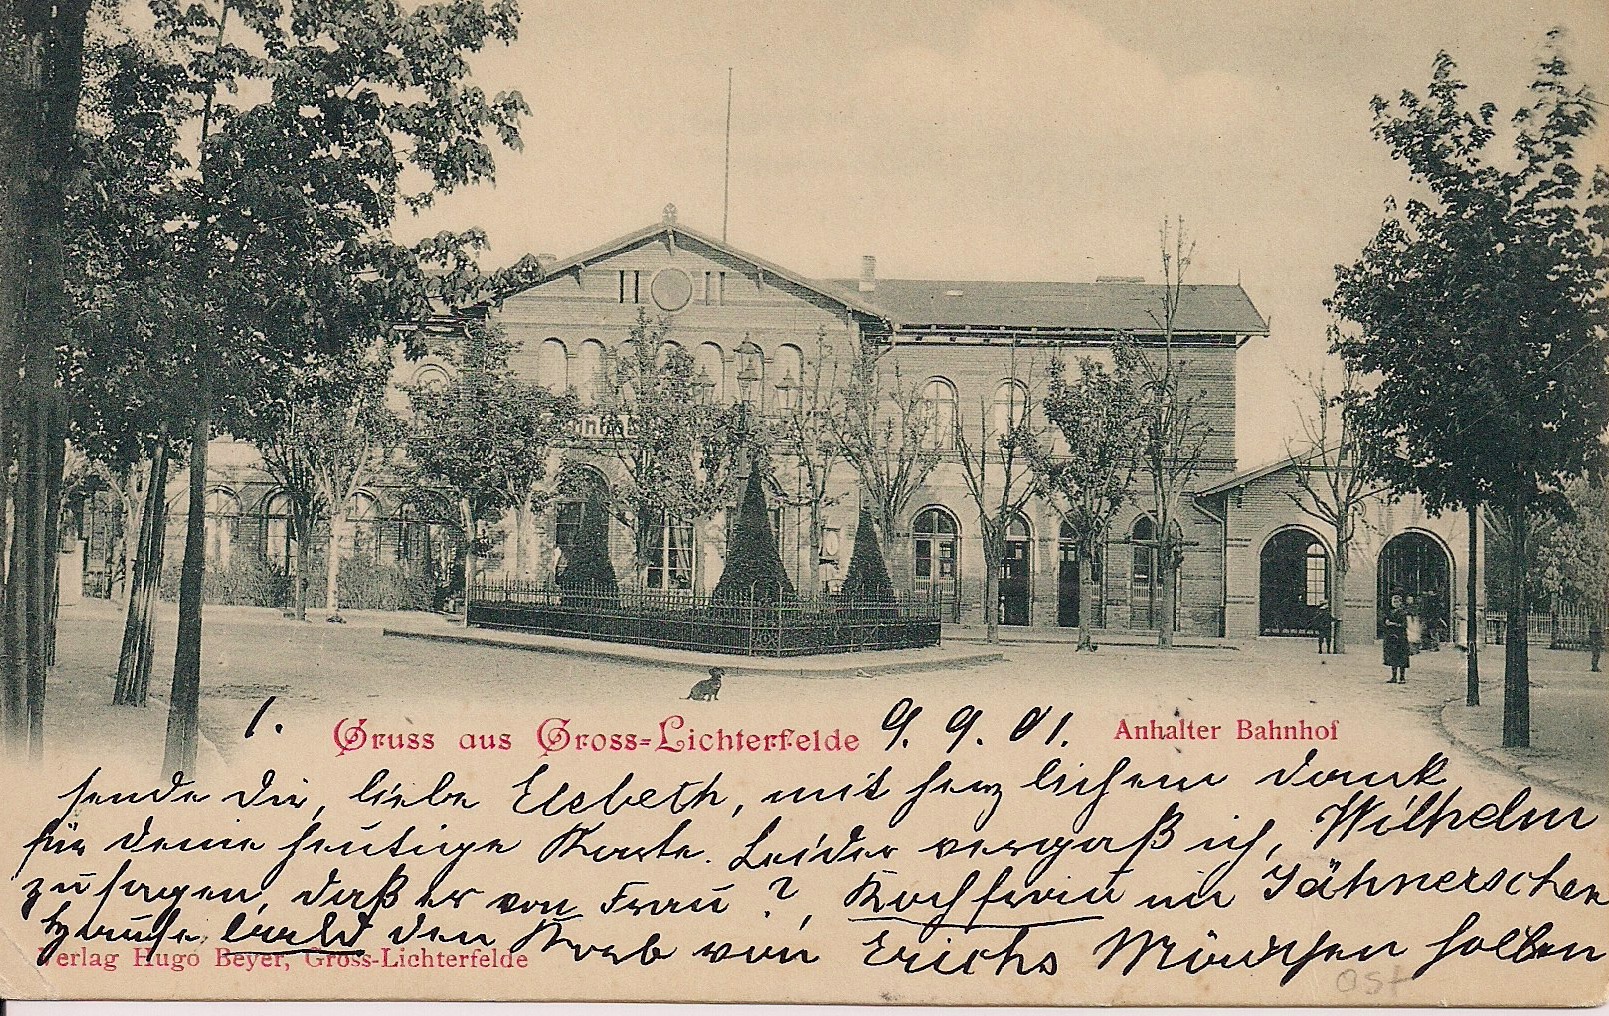 1.
Gruss aus Gross-Lichterfelde 9. 9. 01. Anhalter Bahnhof
sende Dir, liebe Elsbeth, mit herzlichem Dank
für deine heutige Karte. Leider vergaß ich, Wilhelm
zu sagen, daß er von Frau ?, Kochfrau im Jähnerschen
Hause, bald den Korb von Erichs Mädchen holen
Verlag Hugo Beyer, Gross-Lichterfelde
Ost